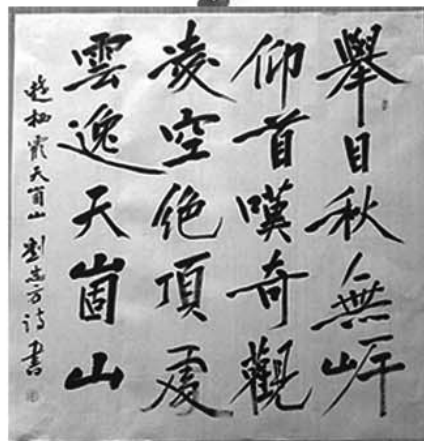 舉目秋無崖
仰首嘆奇觀
凌空絶頂處
雲逸天崮山
遊栖霞天崮山 劉志方詩書